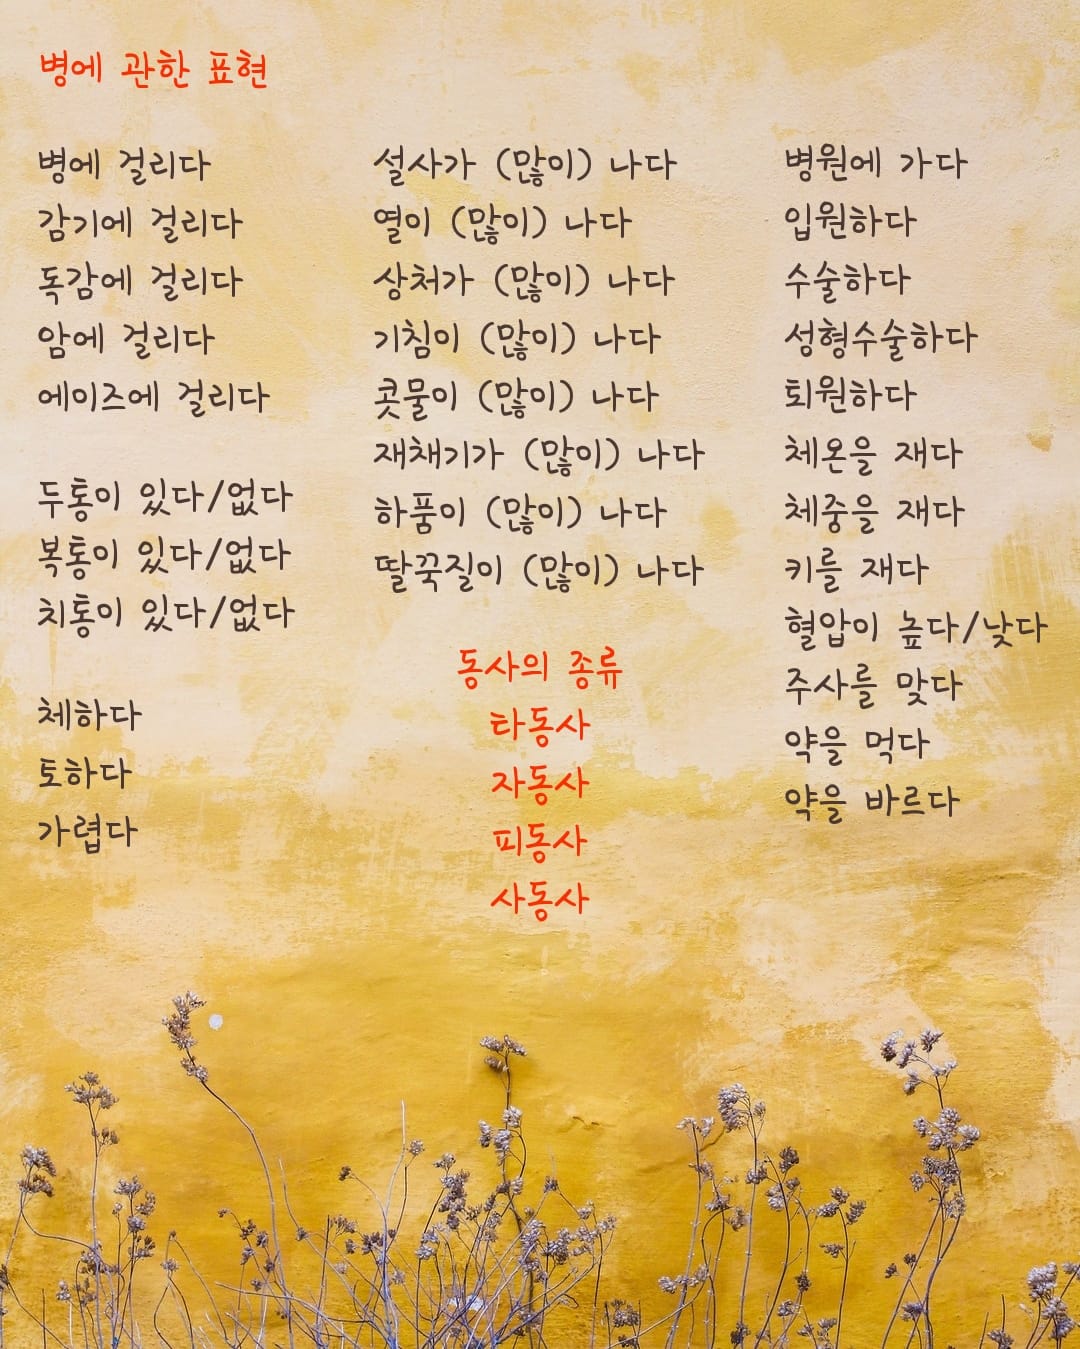 병에 관한 표현
병에 걸리다
감기에 걸리다
독감에 걸리다
암에 걸리다
에이즈에 걸리다
두통이 있다/없다
복통이 있다/없다
치통이 있다/없다
체하다
토하다
가렵다
설사가 (많이) 나다
열이 (많이) 나다
상처가 (많이) 나다
기침이 (많이) 나다
콧물이 (많이) 나다
재채기가 (많이) 나다
하품이 (많이) 나다
딸꾹질이 (많이) 나다
동사의 종류
타동사
자동사
피동사
사동사
병원에 가다
입원하다
수술하다
성형수술하다
퇴원하다
체온을 재다
체중을 재다
키를 재다
혈압이 높다/낮다
주사를 맞다
약을 먹다
약을 바르다